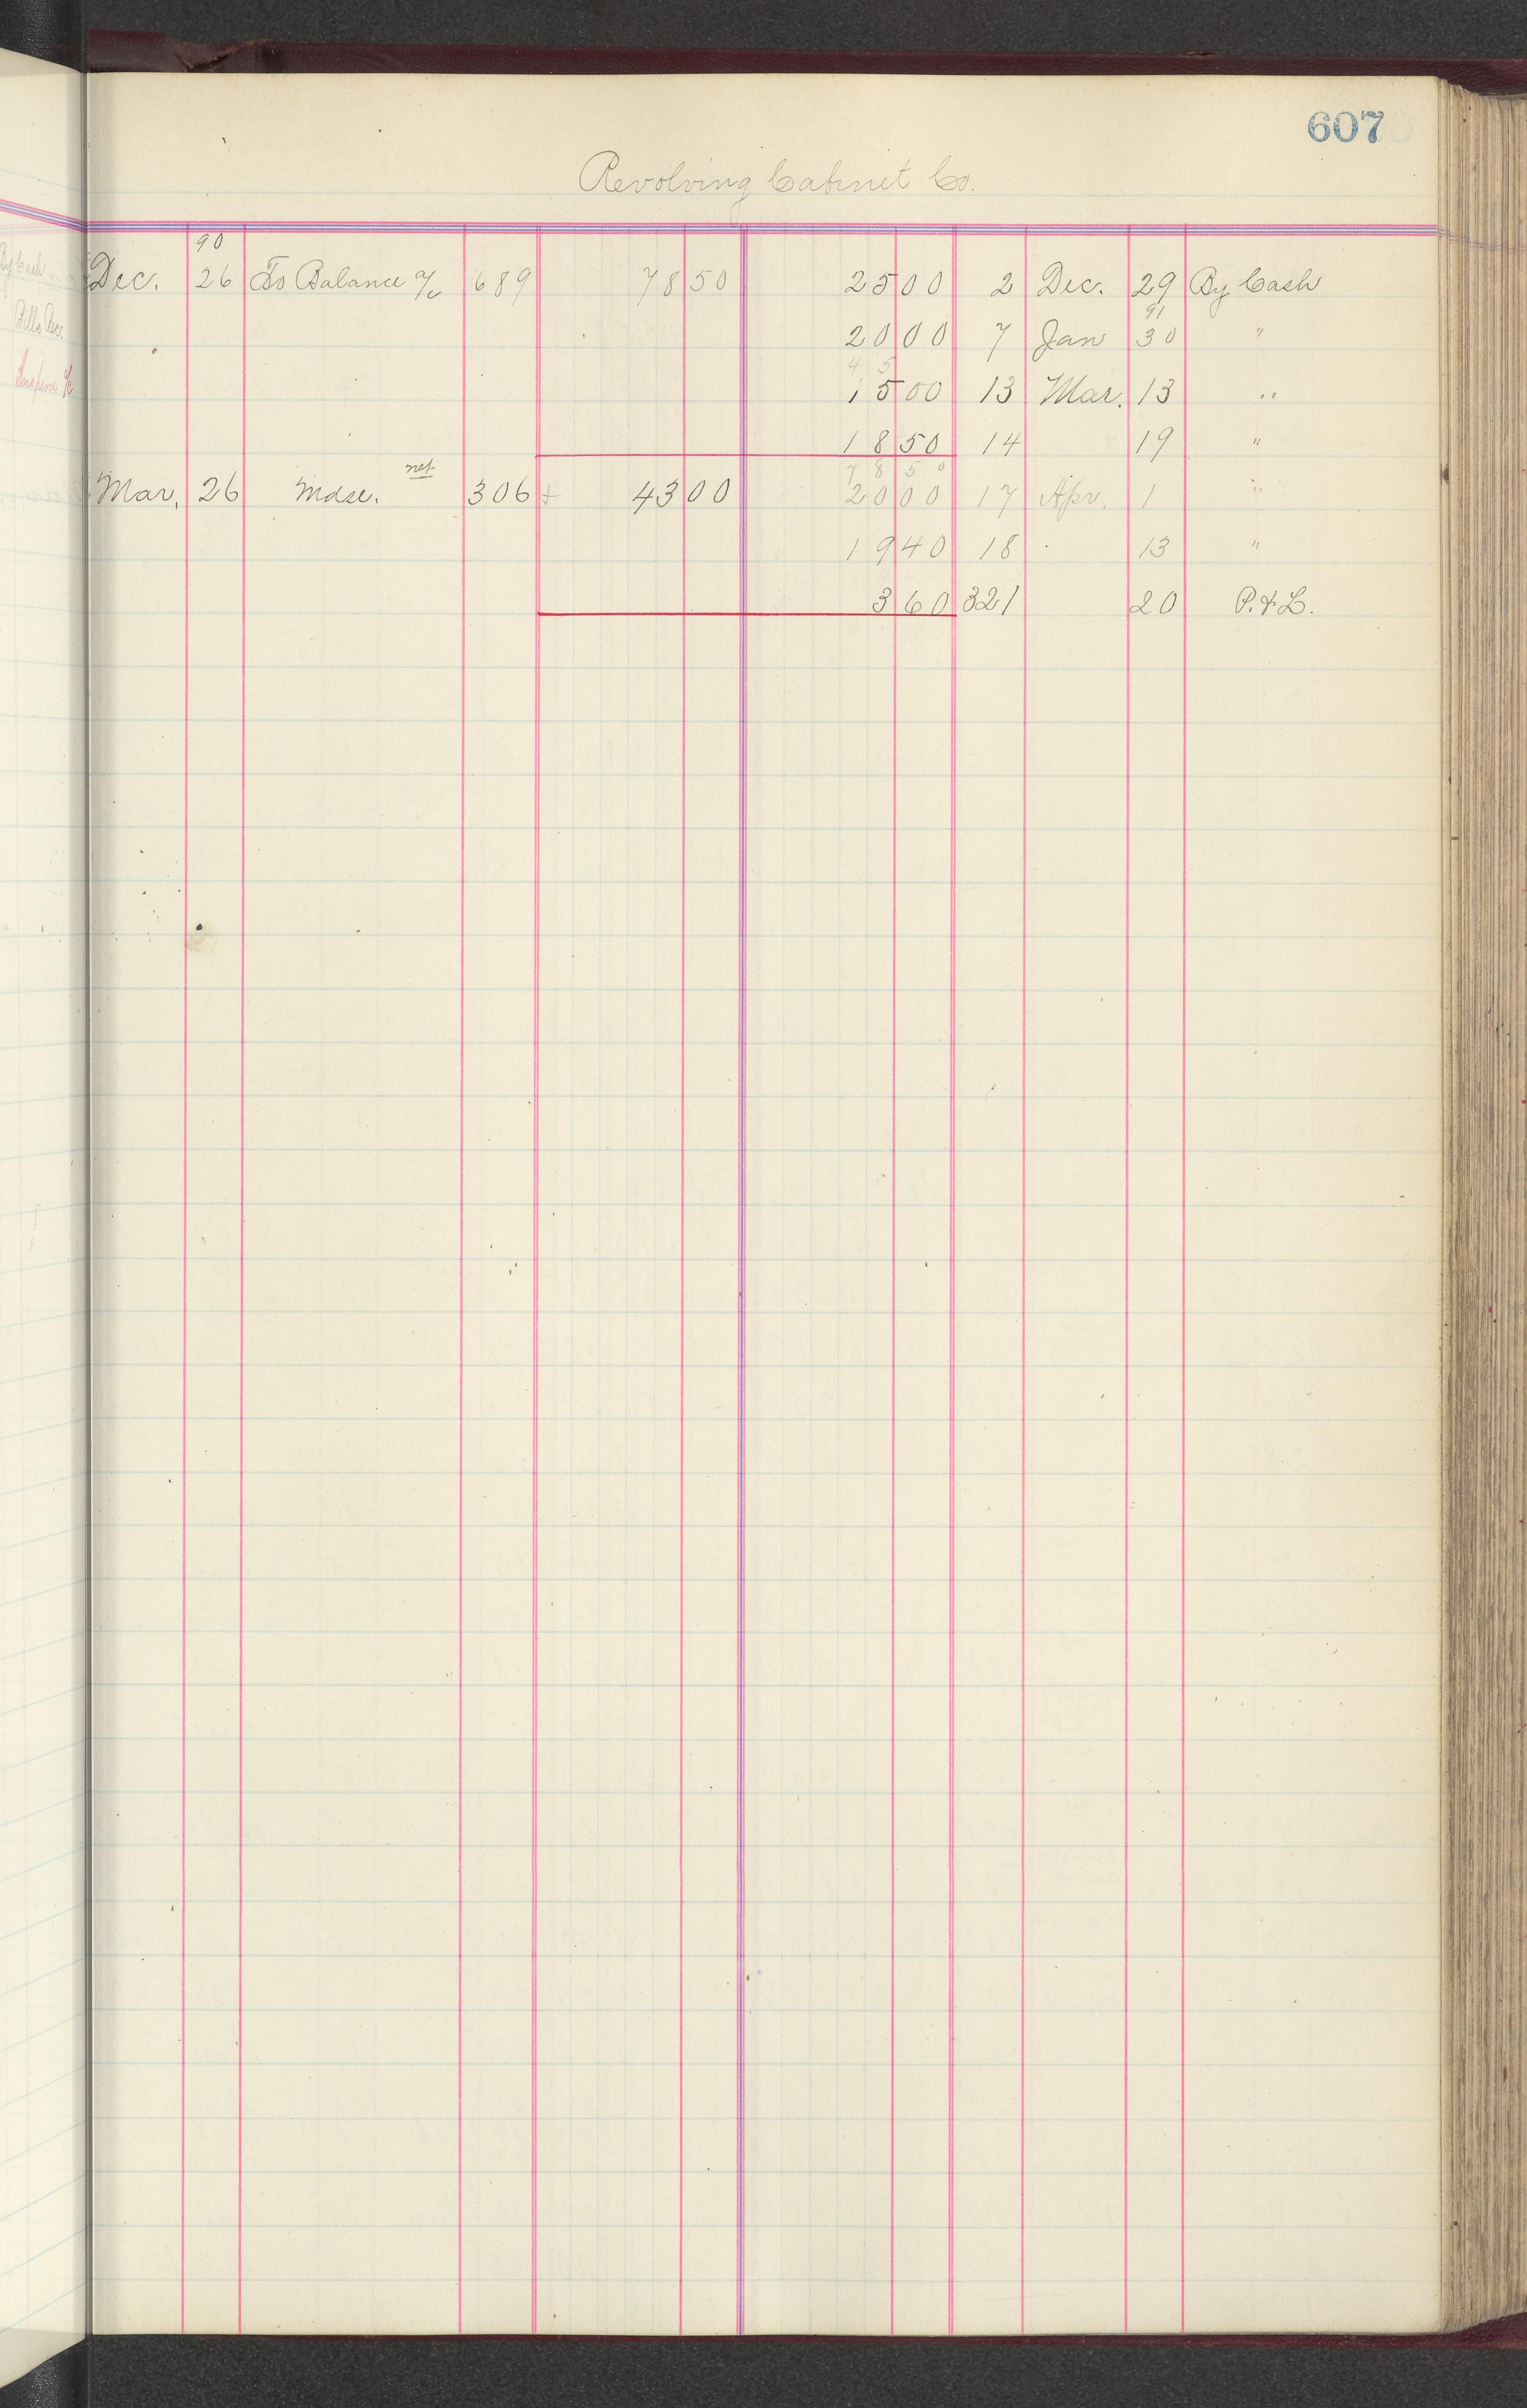 607
Revolving Cabinet Co.
90
Dec. 26 To Balance a/c 689 78 50 25 00 2 Dec. 29 By Cash
91
20 00 7 Jan 30 "
4 5
15 00 13 Mar. 13 "
18 50 14 19 "
7 8 5 0
net
Mar. 26 Mdse. 306 + 43 00 20 00 17 Apr. 1 "
19 40 18 13 "
3 60 321 20 P. & L.
By Cash
Bills Rec.
Suspense a/c